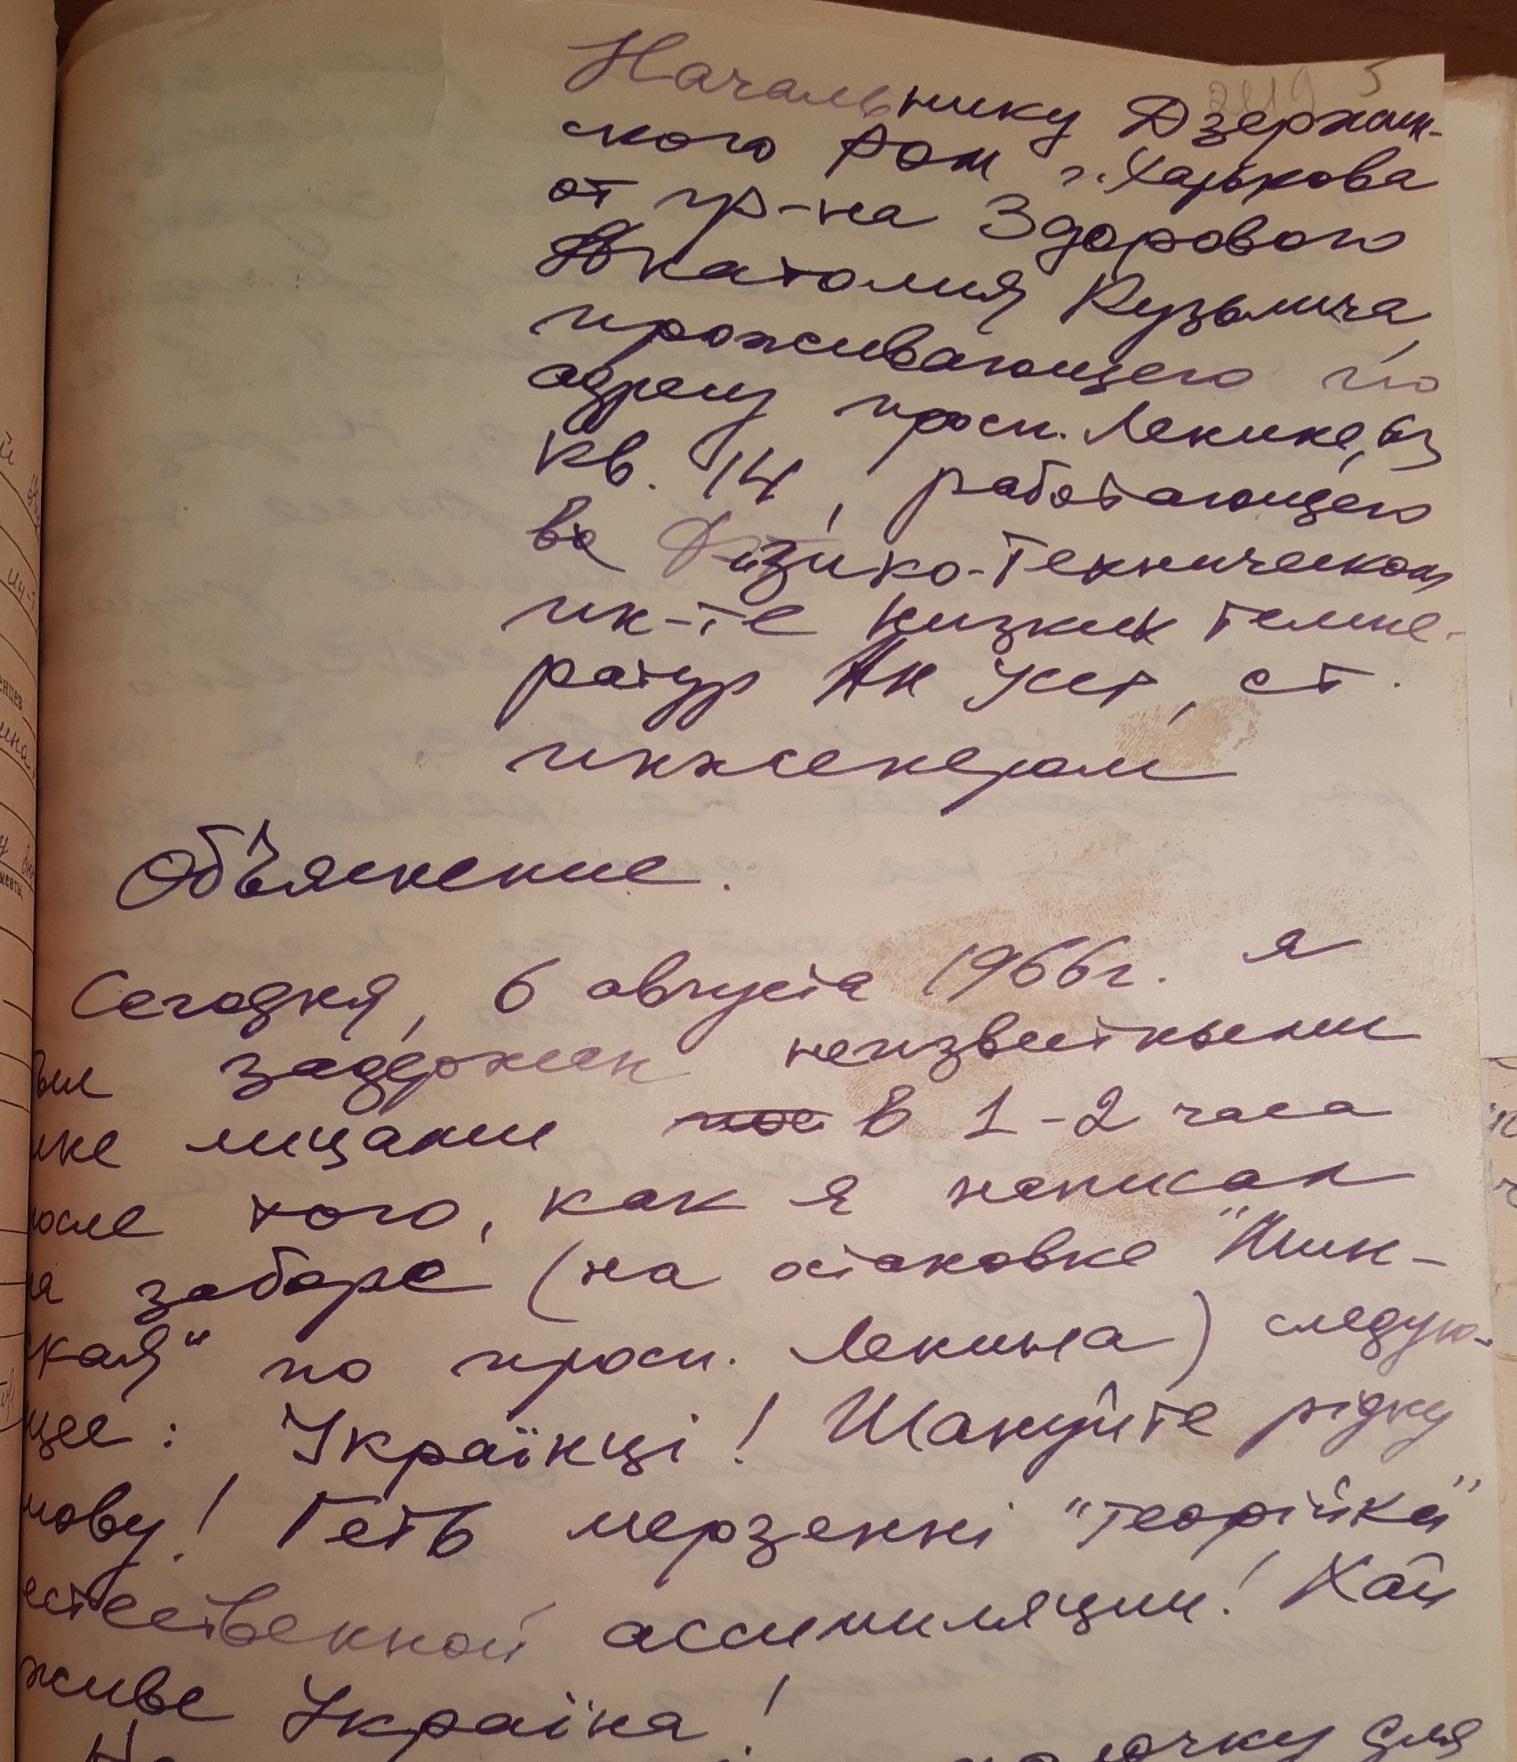 Начальнику Дзержин-
ского РОМ г. Харькова
от гр-на Здорового
Анатолия Кузьмича,
проживающего по
адресу просп. Ленина,
кв. 14, работающего
во Физико-техническом
ин-те низких темпе-
ратур АН УССР, ст.
инженером
Объяснение.
Сегодня, 6 августа 1966г. я
был задержан неизвестными
мне лицами в 1-2 часа
после того, как я написал
на заборе (на остановке "Шиш-
кая" по просп. Ленина) следую-
щее: Українці! Шануйте рідну
мову! Геть мерзенні "теорійки"
естественной ассимиляции! Хай
живе Україна!
для